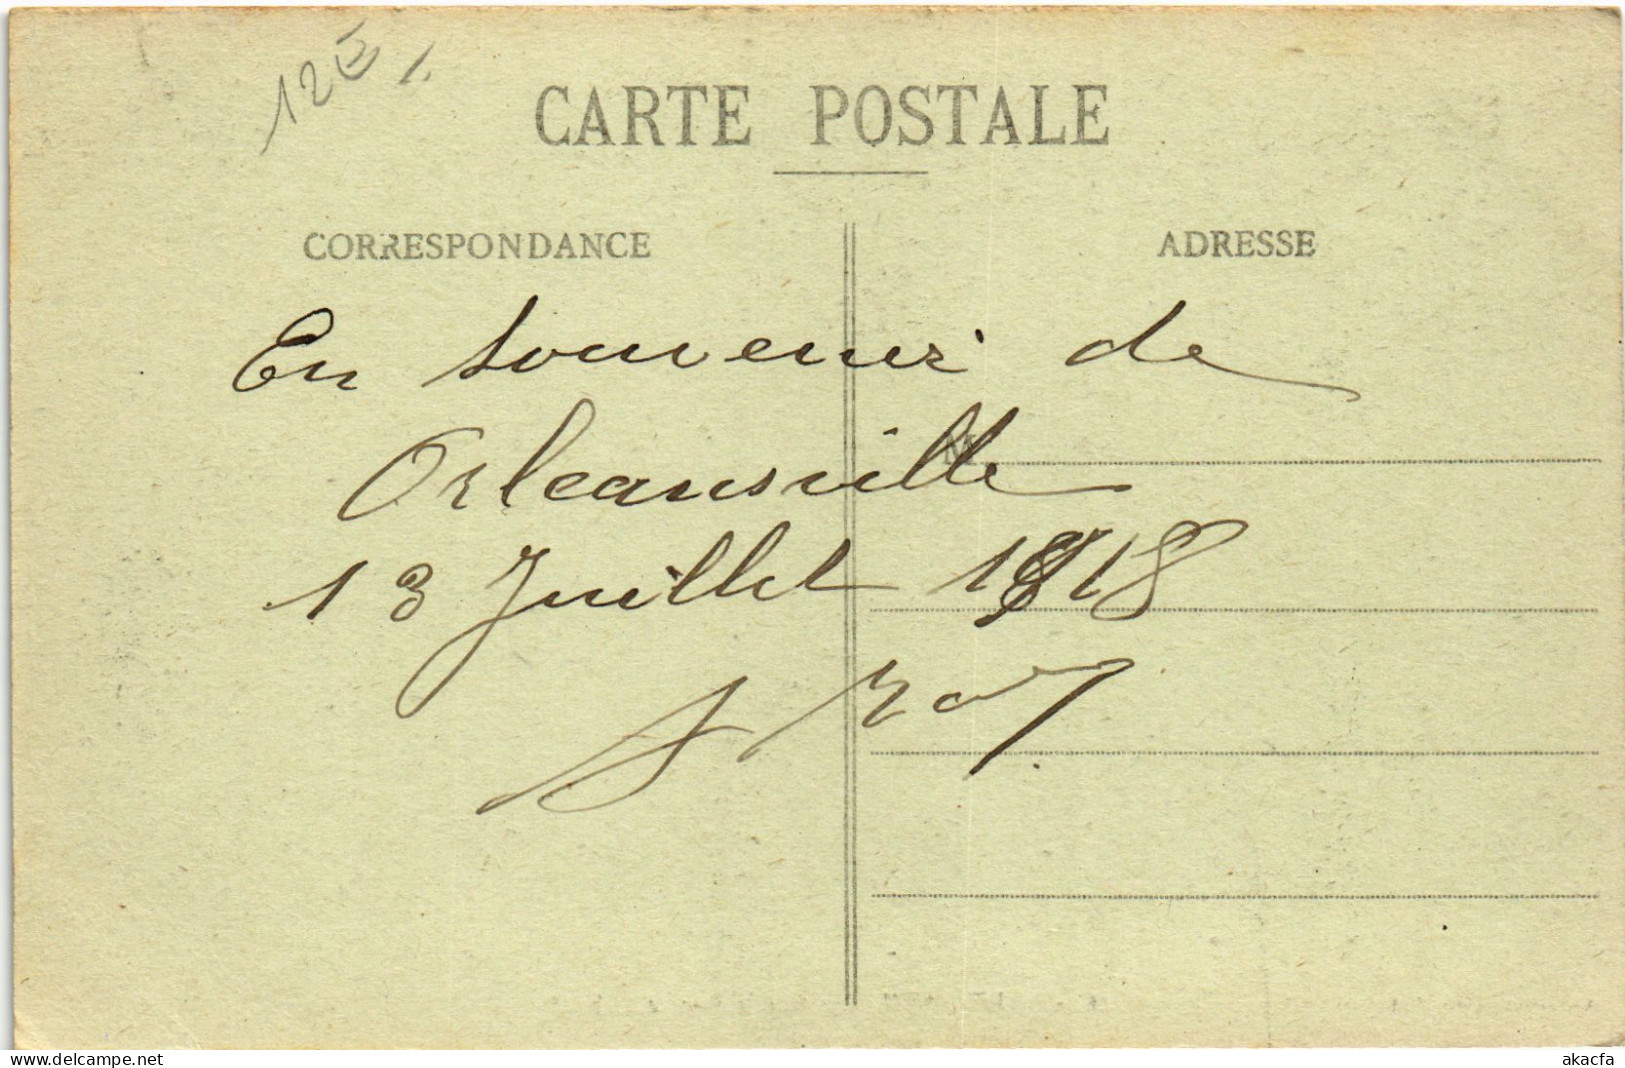 12E
CARTE POSTALE
CORRESPONDANCE
ADRESSE
En souvenir de
Orleansville
M
13 Juillet 1918
www.delcampe.net
akacfa